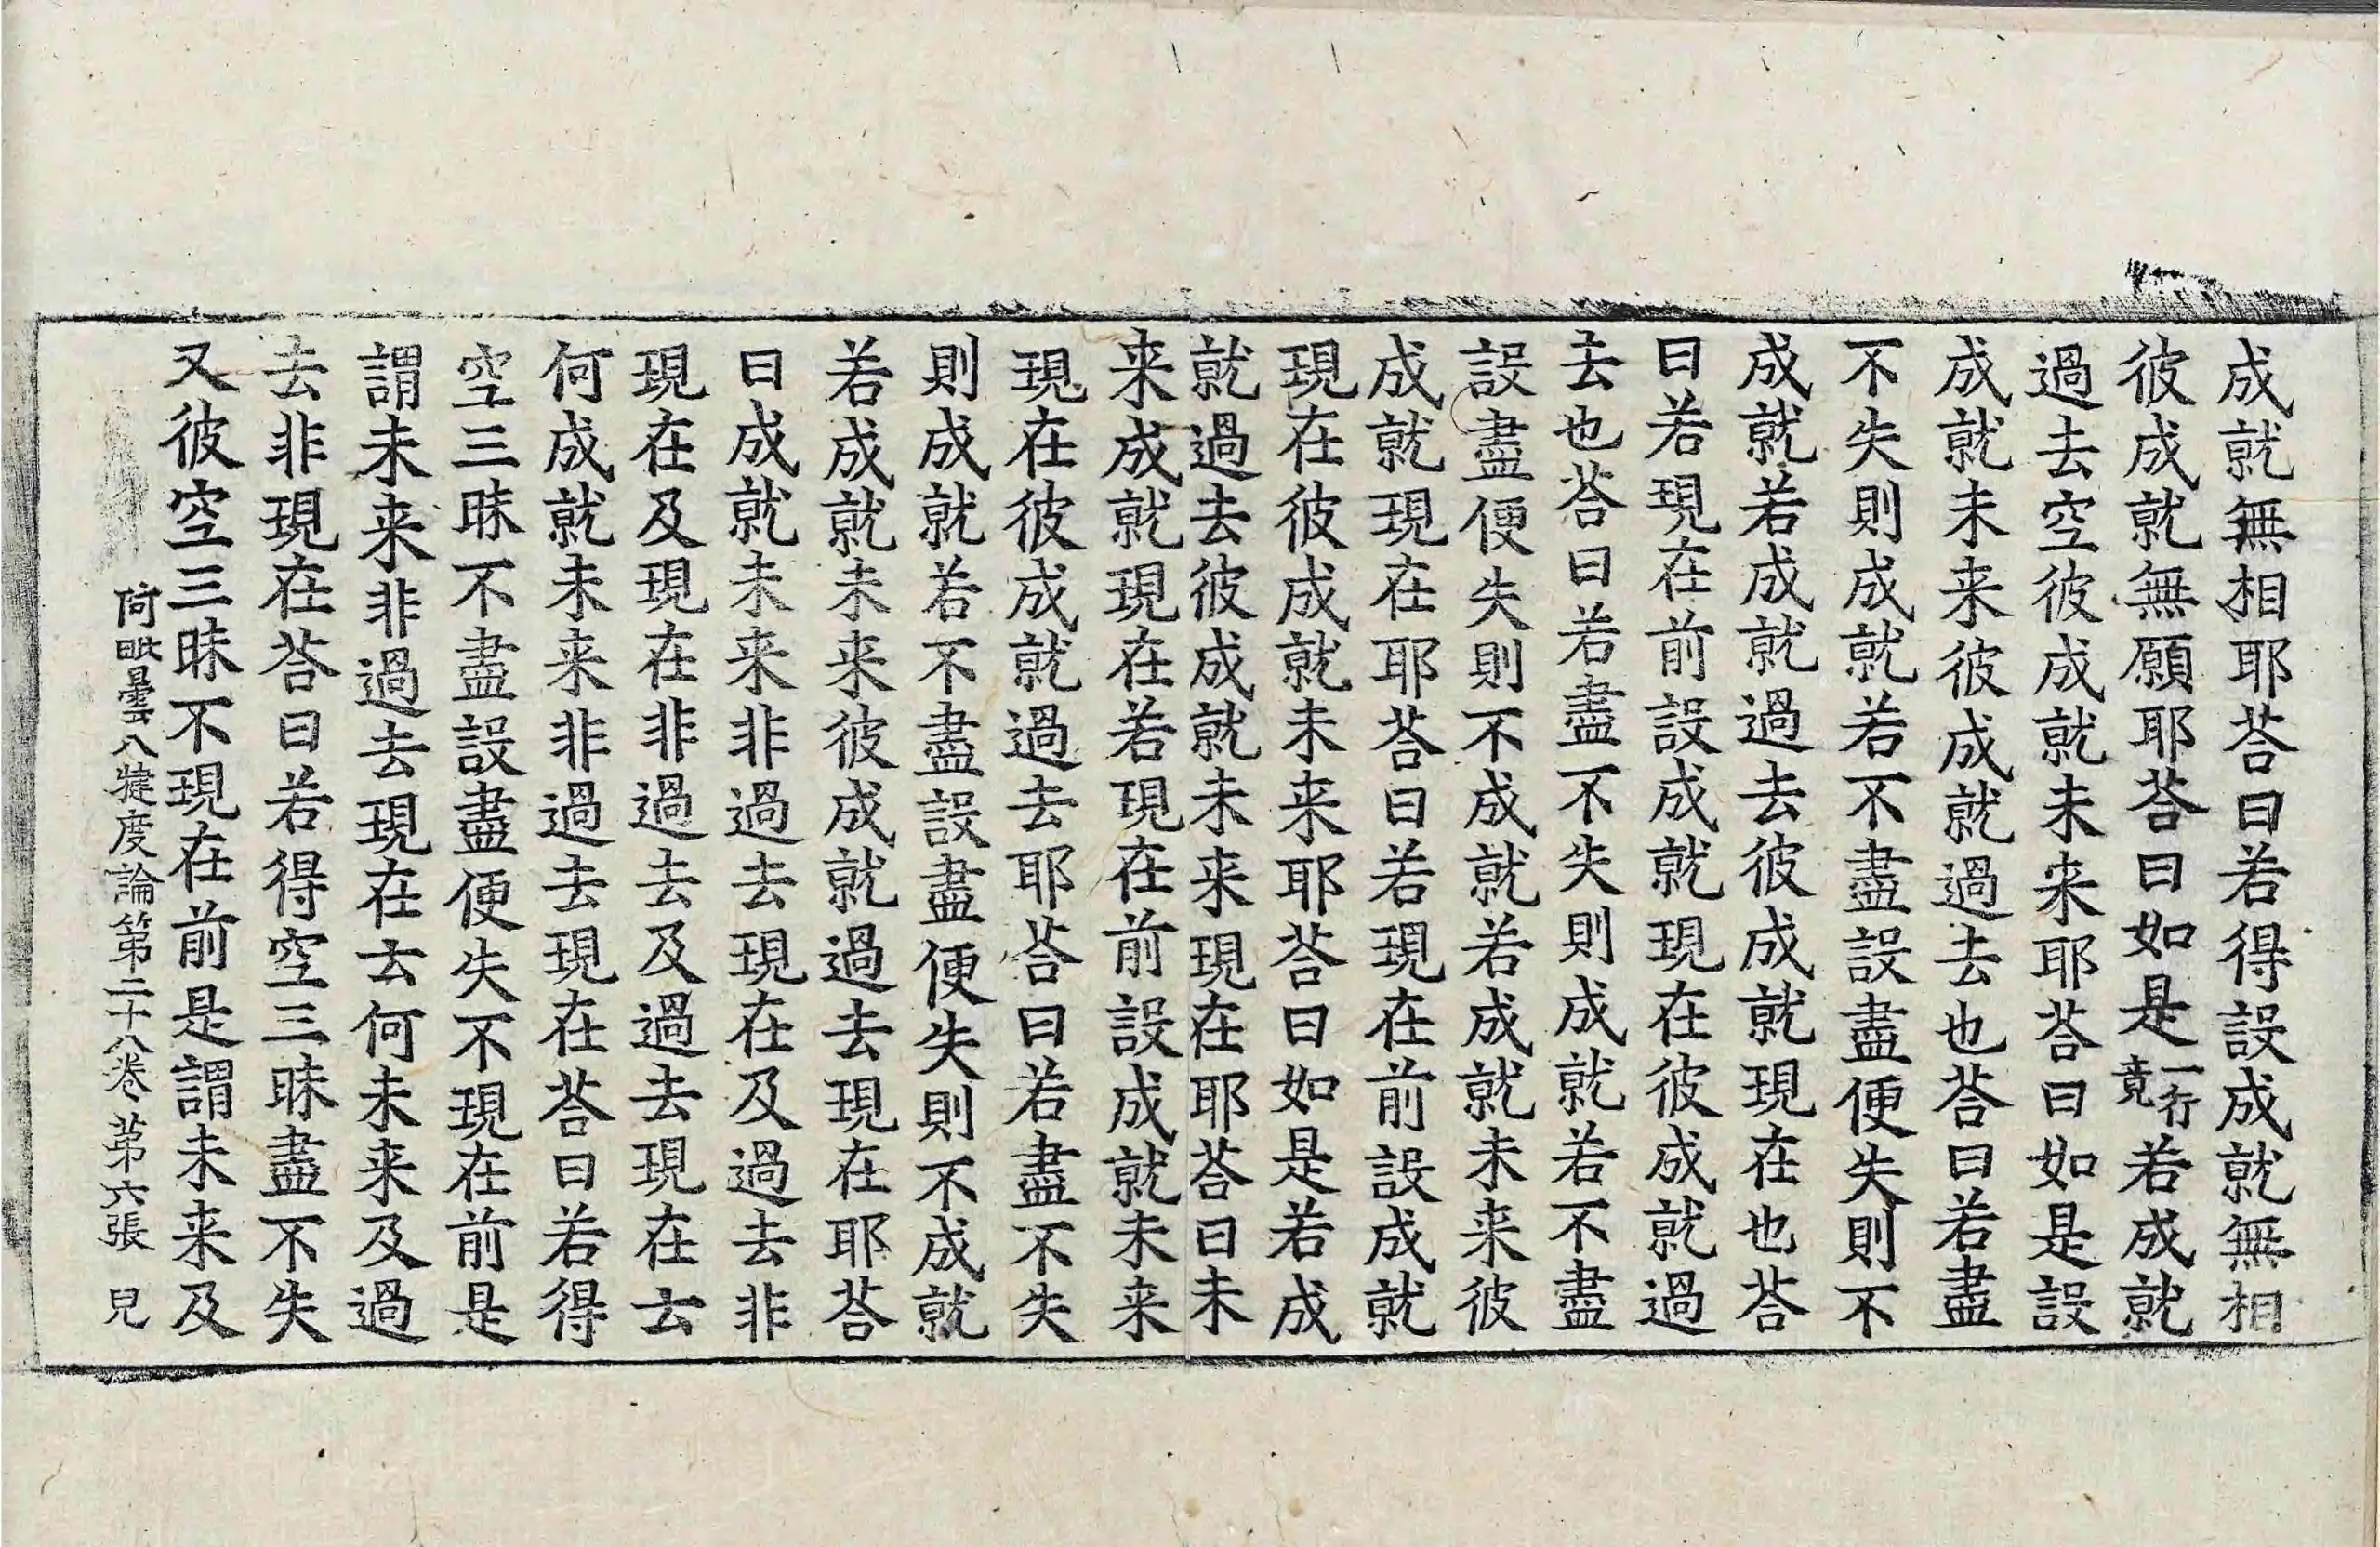 成就無相耶荅曰若得設成就無相
彼成就無願耶荅曰如是一行竟若成就
過去空彼成就未来耶荅曰如是設
成就未来彼成就過去也荅曰若盡
不失則成就若不盡設盡便失則不
成就若成就過去彼成就現在也荅
曰若現在前設成就現在彼成就過
去也荅曰若盡不失則成就若不盡
設盡便失則不成就若成就未来彼
成就現在耶荅曰若現在前設成就
現在彼成就未来耶荅曰如是若成
就過去彼成就未来現在耶荅曰未
来成就現在若現在前設成就未来
現在彼成就過去耶荅曰若盡不失
則成就若不盡設盡便失則不成就
若成就未来彼成就過去現在耶荅
曰成就未来非過去現在及過去非
現在及現在非過去及過去現在云
何成就未来非過去現在荅曰若得
空三昧不盡設盡便失不現在前是
謂未来非過去現在云何未来及過
去非現在荅曰若得空三昧盡不失
又彼空三昧不現在前是謂未来及
阿毗曇八犍度論第二十八卷 苐六張 兒